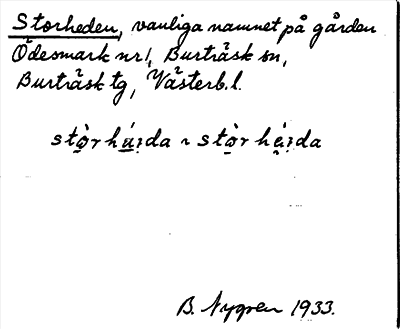 Storheden, vanliga namnet på gården
Ödesmark nr 1, Burträsk sn,
Burträsk tg, Västerb. l.
stò̱rhá̱i̯da ~ stò̱rhé̱i̯da
B. Nygren 1933.